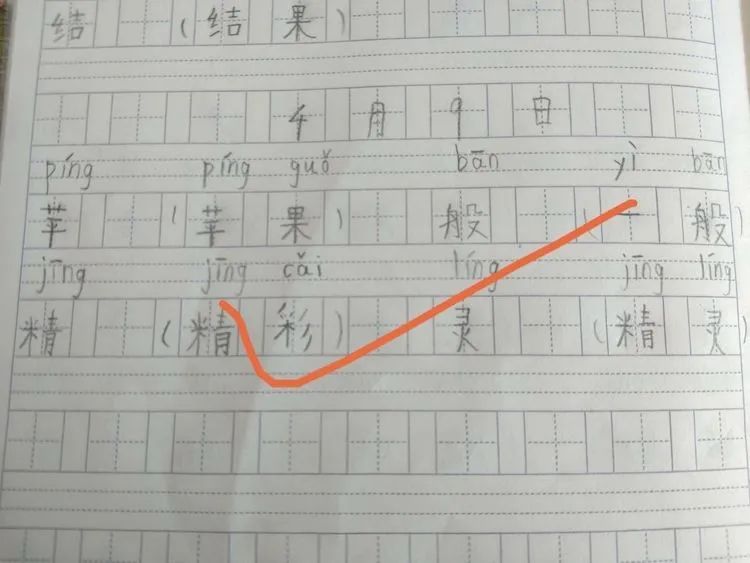 结 (结果)
4月9日
píng píng guǒ bān yì bān
苹 (苹果) 般 (一般
jīng jīng cǎi líng jīng líng
精 (精彩) 灵 (精灵)